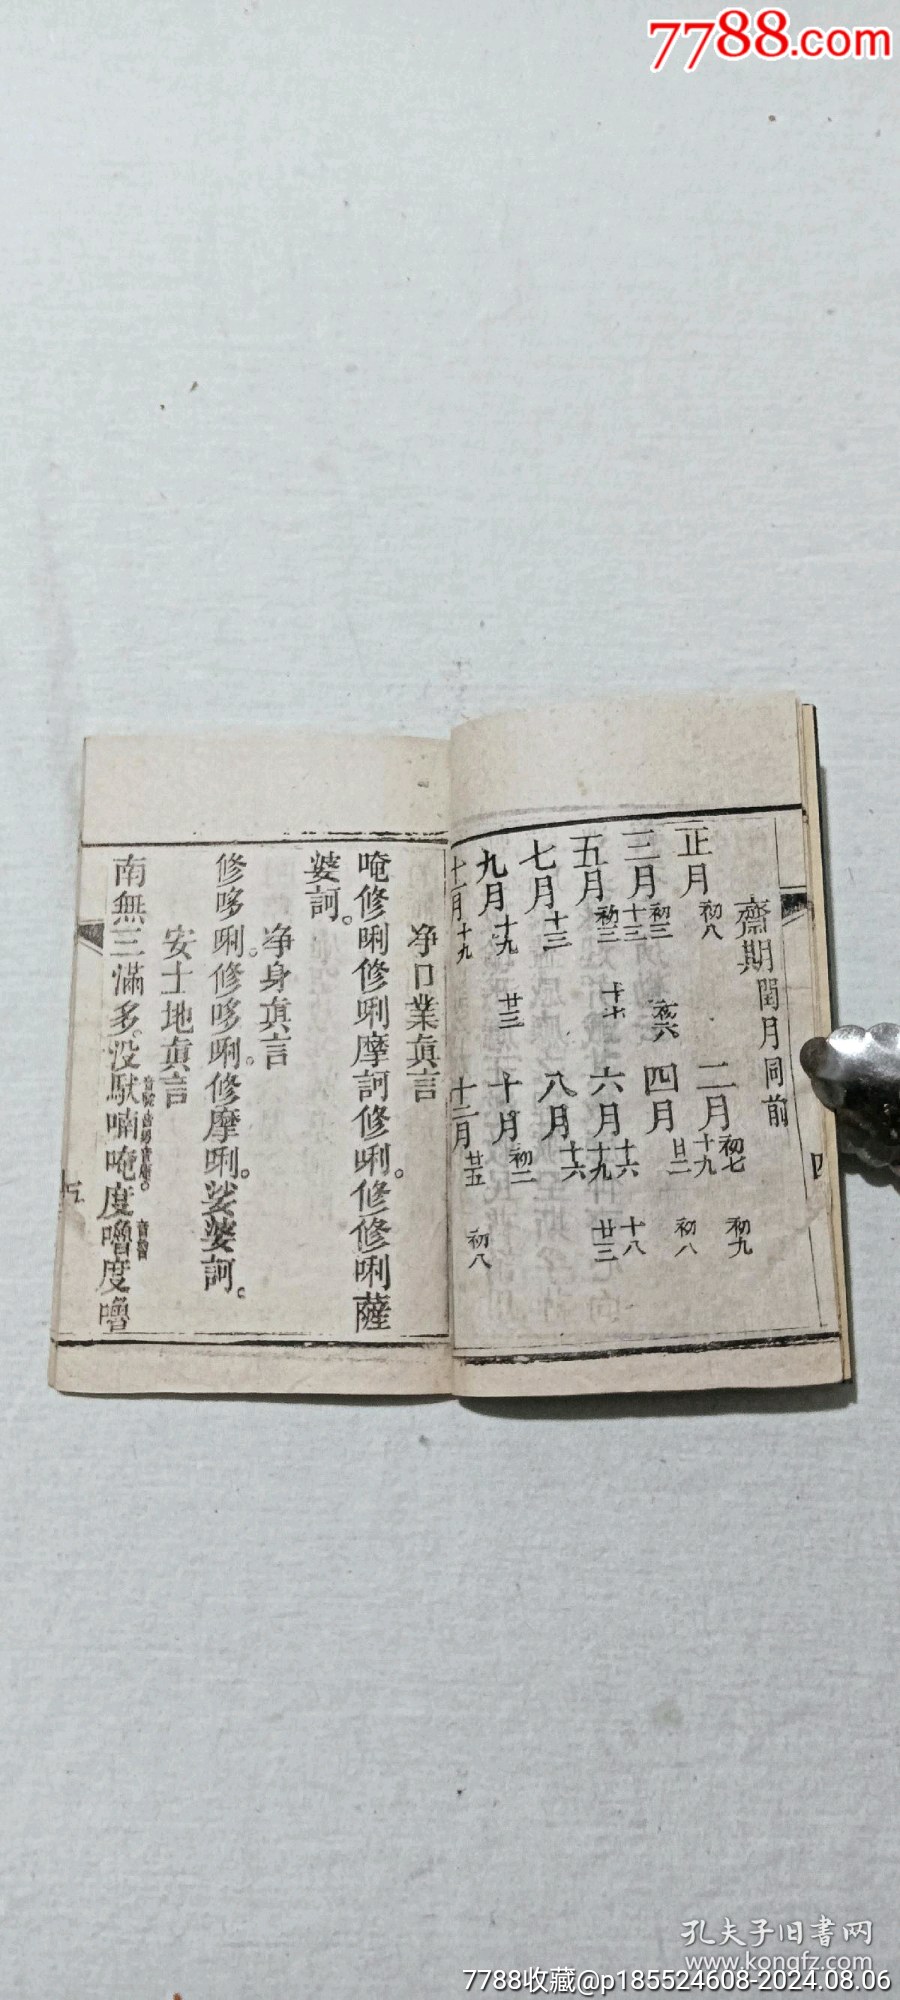 7788.com
齋期閏月同前
正月 初八 二月 初七 初九 十九
三月 初三 初六 十三 四月 初八 廿二
五月 初三 十七 六月 十六 十八 十九 廿三
七月 十三 八月 十六
九月 十九 廿三 十月 初二
十一月 十九 十二月 初八 廿五
四
净口業真言
唵修唎修唎摩訶修唎。修修唎薩
婆訶。
净身真言
修哆唎。修哆唎。修摩唎。娑婆訶。
安土地真言
南無三滿多。没馱喃唵度嚕度嚕
五
孔夫子旧書网
www.kongfz.com
7788收藏@p185524608-2024.08.06